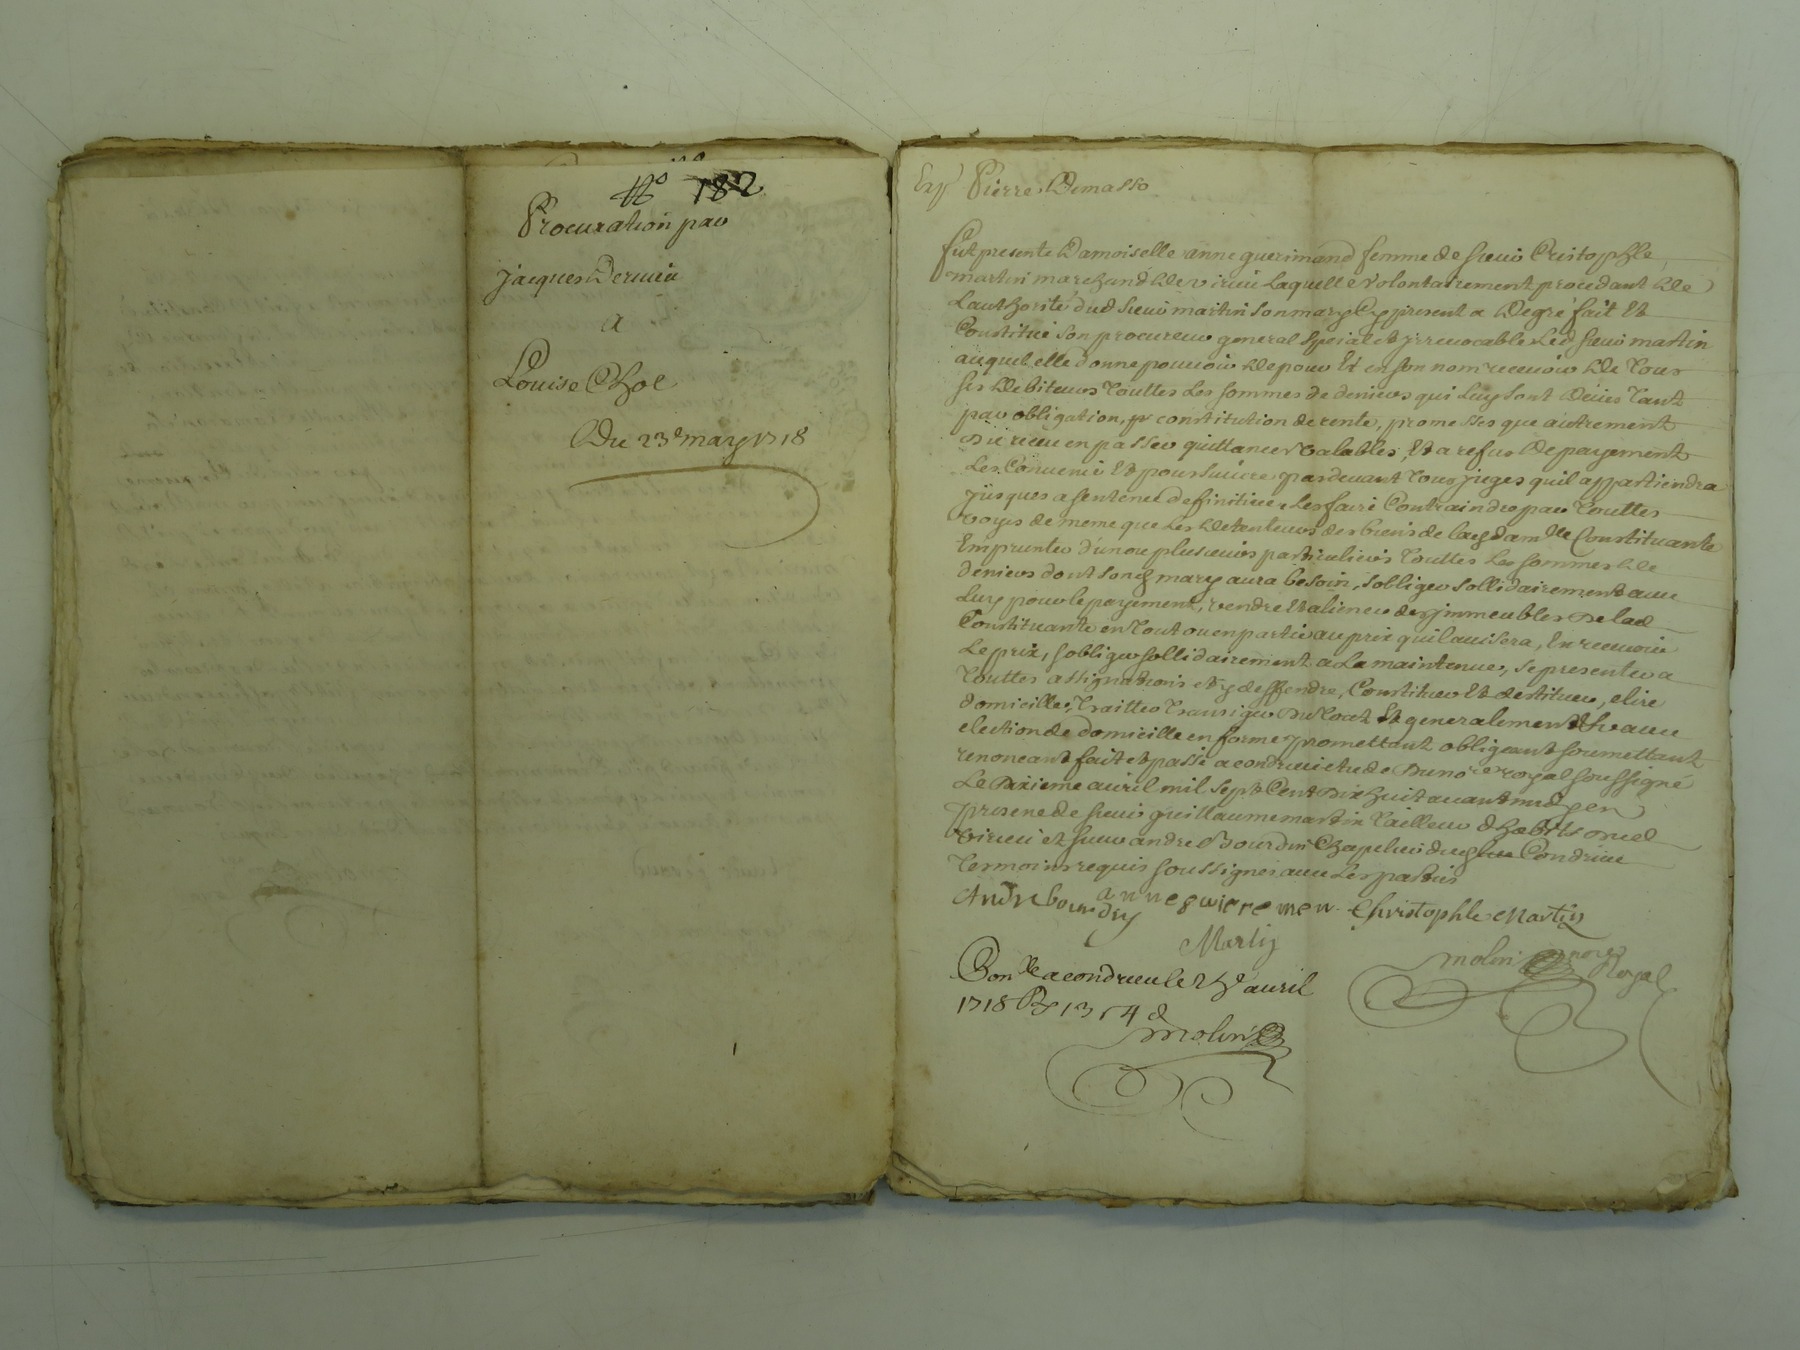 No 182
Procuration par
Jacques Dervieu
a
Louise Chol
Du 23e may 1718
Exp Pierre Demasso
Fut presente Damoiselle anne guerimand femme de sieur Cristophle
martin marchand de virieu Laquelle volontairement procedant de
Lauthorité dud sieur martin son mary Cy present a De gré fait Et
Constitué son procureur general special et jrrevocable Led sieur martin
auquel elle donne pouvoir de pour Et en son nom recevoir de tous
ses debiteurs touttes Les sommes de deniers qui Luy sont Deües tant
par obligation, constitution de rente, promesses que autrement
Du receu en passer quittances valables, Et a refus De payement
Les Convenir Et poursuivre pardevant tous juges quil appartiendra
jusques a sentence definitive, Les faire Contraindre par touttes
voyes de meme que Les detenteurs des biens de lad damlle Constituante
Emprunter d'un ou plusieurs particuliers touttes Les sommes de
deniers dont sond mary aura besoin, sobliger sollidairement avec
Luy pour le payement, vendre Et aliener des jmmeubles De lad
Constituante en tout ou en partie au prix quil avisera, En recevoir
Le prix, sobliger sollidairement a La maintenue, se presenter a
touttes assignations et y deffendre, Constituer Et destituer, elire
domicilles, traitter transiger Du tout Et generalement avec
election de domicille en forme promettant obligeant soumettant
renonceant fait et passé a condrieu etude Du nore royal soussigné
Le Dixieme avril mil sept Cent Dix huit avant midy en
presence de sieur guillaume martin tailleur d'habits dud
virieu et sieur andre Bourdin Chapelier dud Condrieu
temoins requis soussignes avec Les parties
Andre bourdin anne guiremen Christophle Martin
Martin
Con lle a condrieu le avril
1718
molin
molin nore Royal